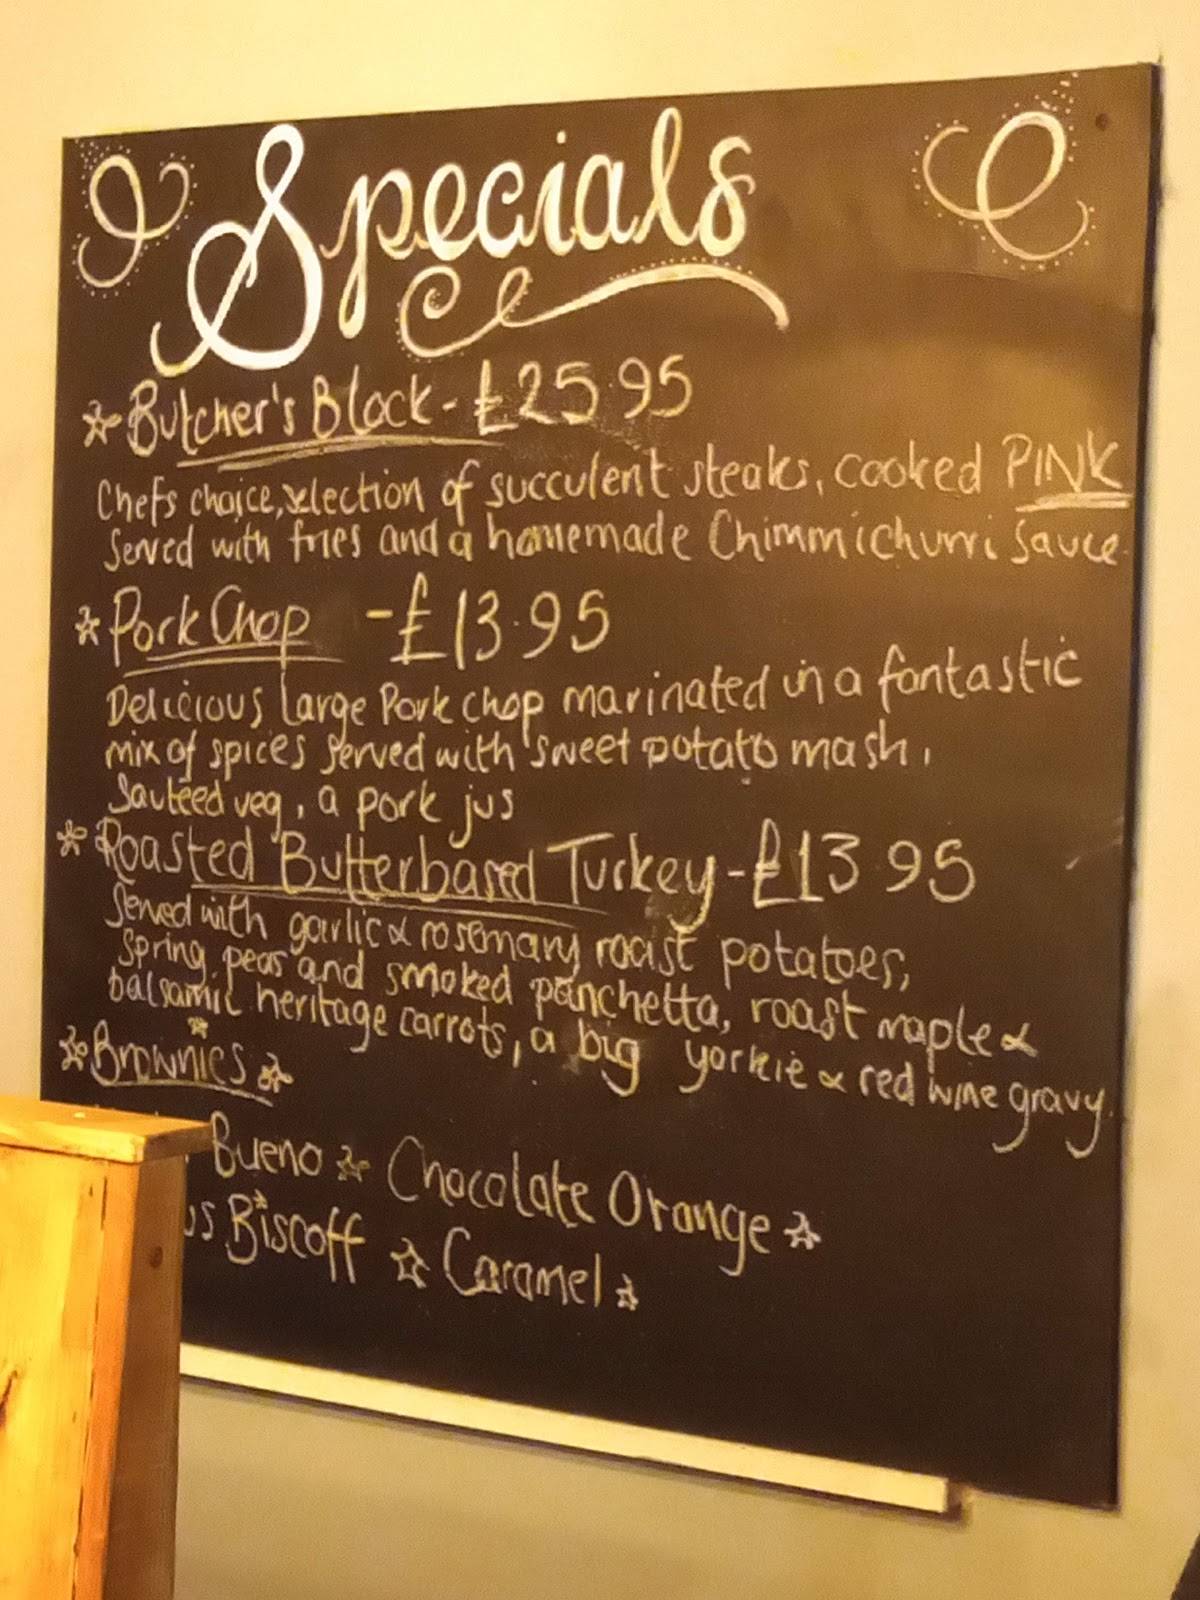 Specials
Butcher's Block - £25.95
Chefs choice, selection of succulent steaks, cooked PINK
Served with fries and a homemade Chimmichurri Sauce.
Pork Chop - £13.95
Delicious large Pork chop marinated in a fantastic
mix of spices served with sweet potato mash,
Sauteed veg, a pork jus
Roasted Butterbased Turkey - £13.95
Served with garlic & rosemary roast potatoes,
Spring peas and smoked panchetta, roast maple &
balsamic heritage carrots, a big yorkie & red wine gravy.
Brownies
Bueno Chocolate Orange
Biscoff Caramel